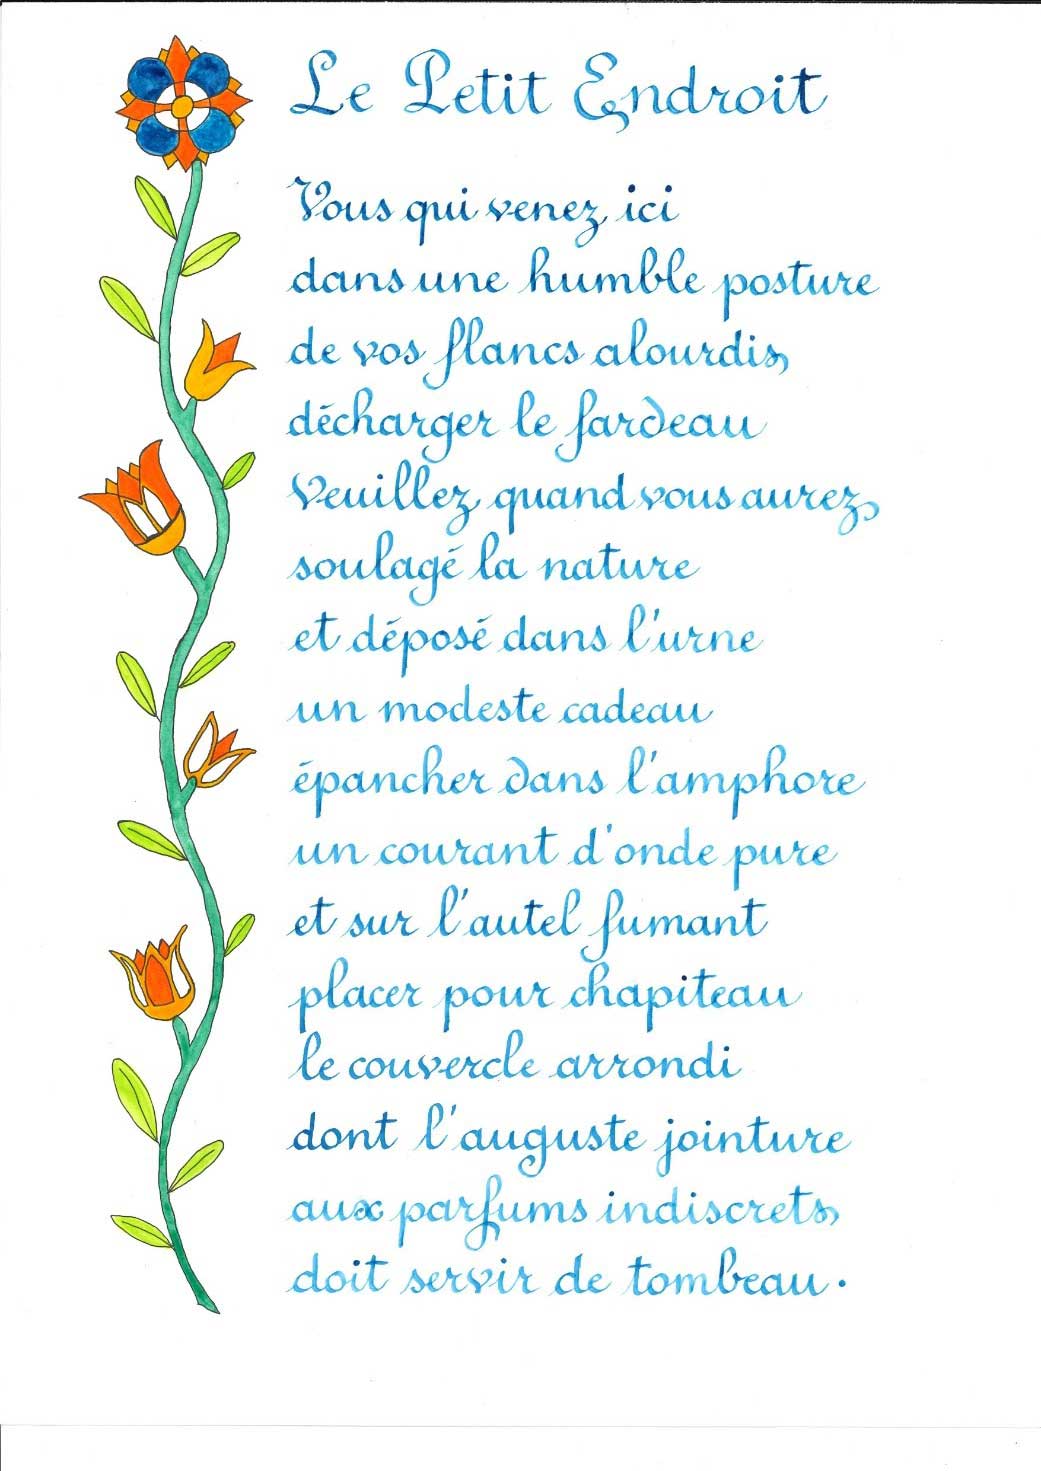 Le Petit Endroit
Vous qui venez ici
dans une humble posture
de vos flancs alourdis,
décharger le fardeau
Veuillez, quand vous aurez,
soulagé la nature
et déposé dans l'urne
un modeste cadeau
épancher dans l'amphore
un courant d'onde pure
et sur l'autel fumant
placer pour chapiteau
le couvercle arrondi
dont l'auguste jointure
aux parfums indiscrets,
doit servir de tombeau.